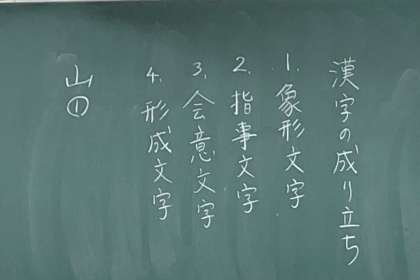 漢字の成り立ち
1.象形文字
2.指事文字
3.会意文字
4.形成文字
山①